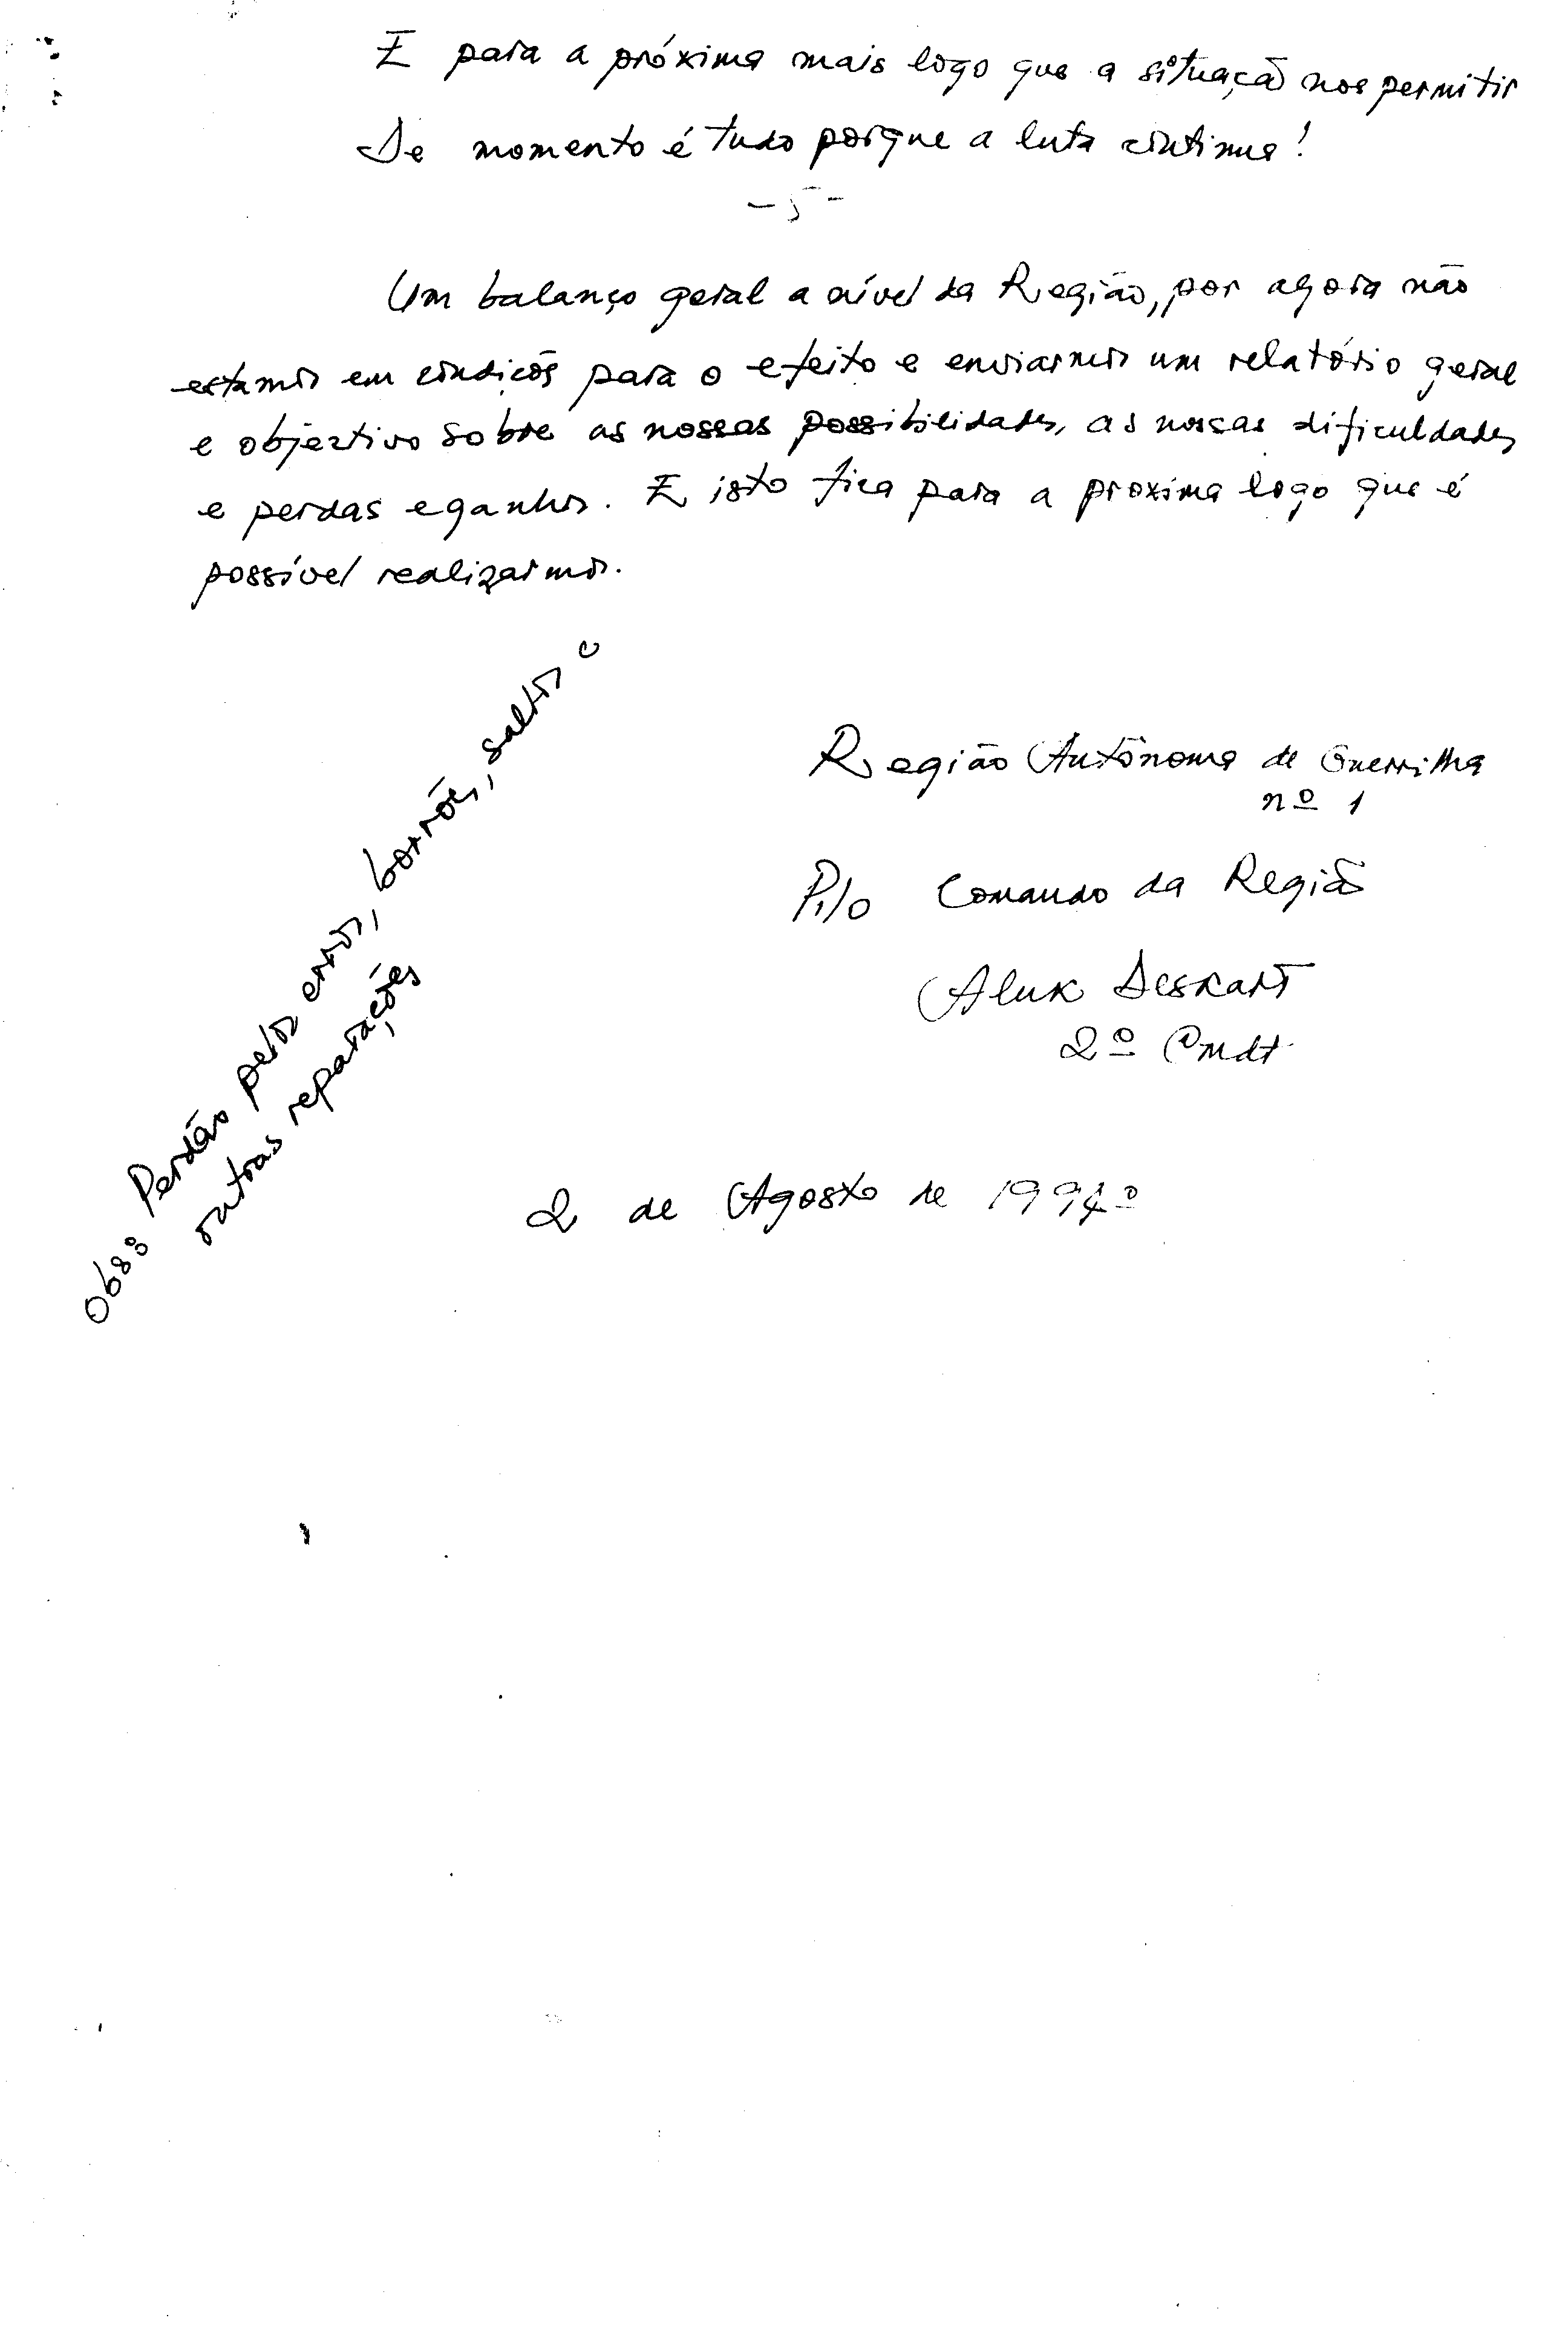 E para a próxima mais logo que a situaçã nos permitir
De momento é tudo porque a luta continua!
- 5 -
Um balanço geral a nível da Região, por agora não
estamos em condicõs para o efeito e enviarmos um relatório geral
e objectivo sobre as nossas possibilidades, as nossas dificuldades
e perdas e ganhos. E isto fica para a proxima logo que é
possível realizarmos.
Região Autónoma de Guerrilha
nº 1
P'lo Comando da Regiã
Aluk Deskart
2º Cmdt.
2 de Agosto de 1994º
Obs: Perdão pelos erros, borrões, saltos e
outras reparações